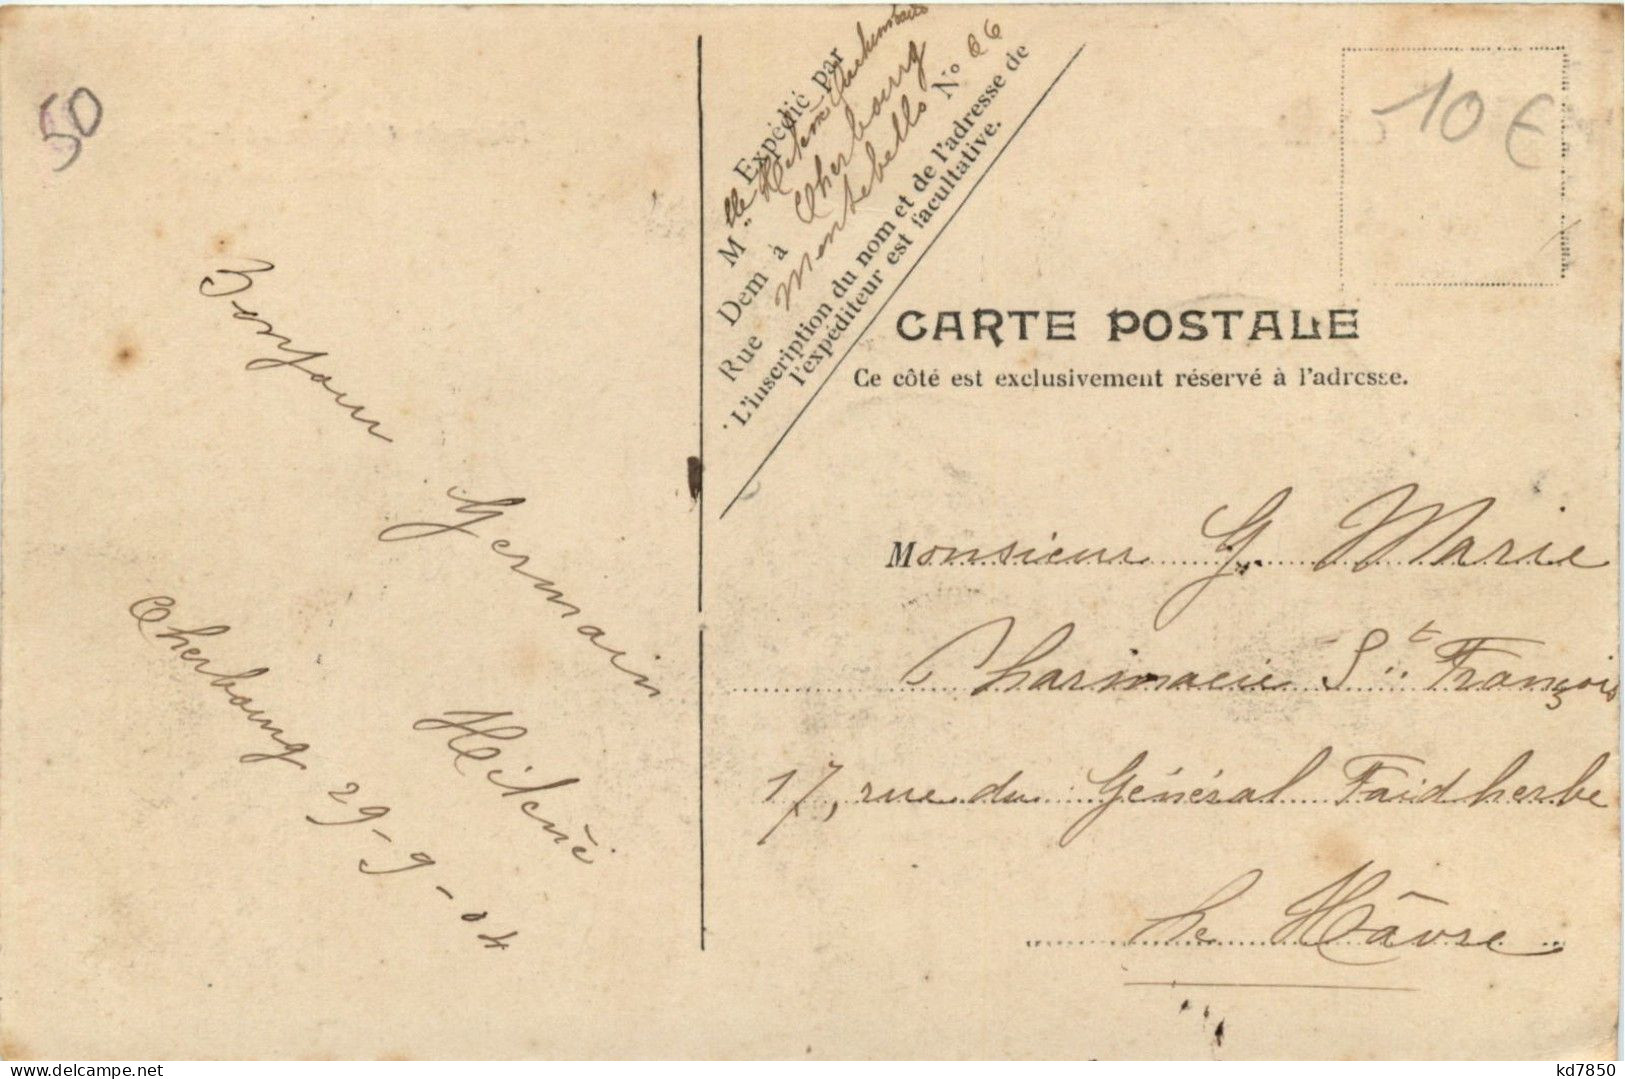 50
Bonjour
Germain
Hélène
Cherbourg 29-9-04
Expédié par
Mlle Hélène
Dem à Cherbourg
Rue Montebello No 66
L'inscription du nom et de l'adresse de
l'expéditeur est facultative.
10 €
CARTE POSTALE
Ce côté est exclusivement réservé à l'adresse.
Monsieur G. Marie
Pharmacie St François
17, rue du Général Faidherbe
Le Hâvre
kd7850